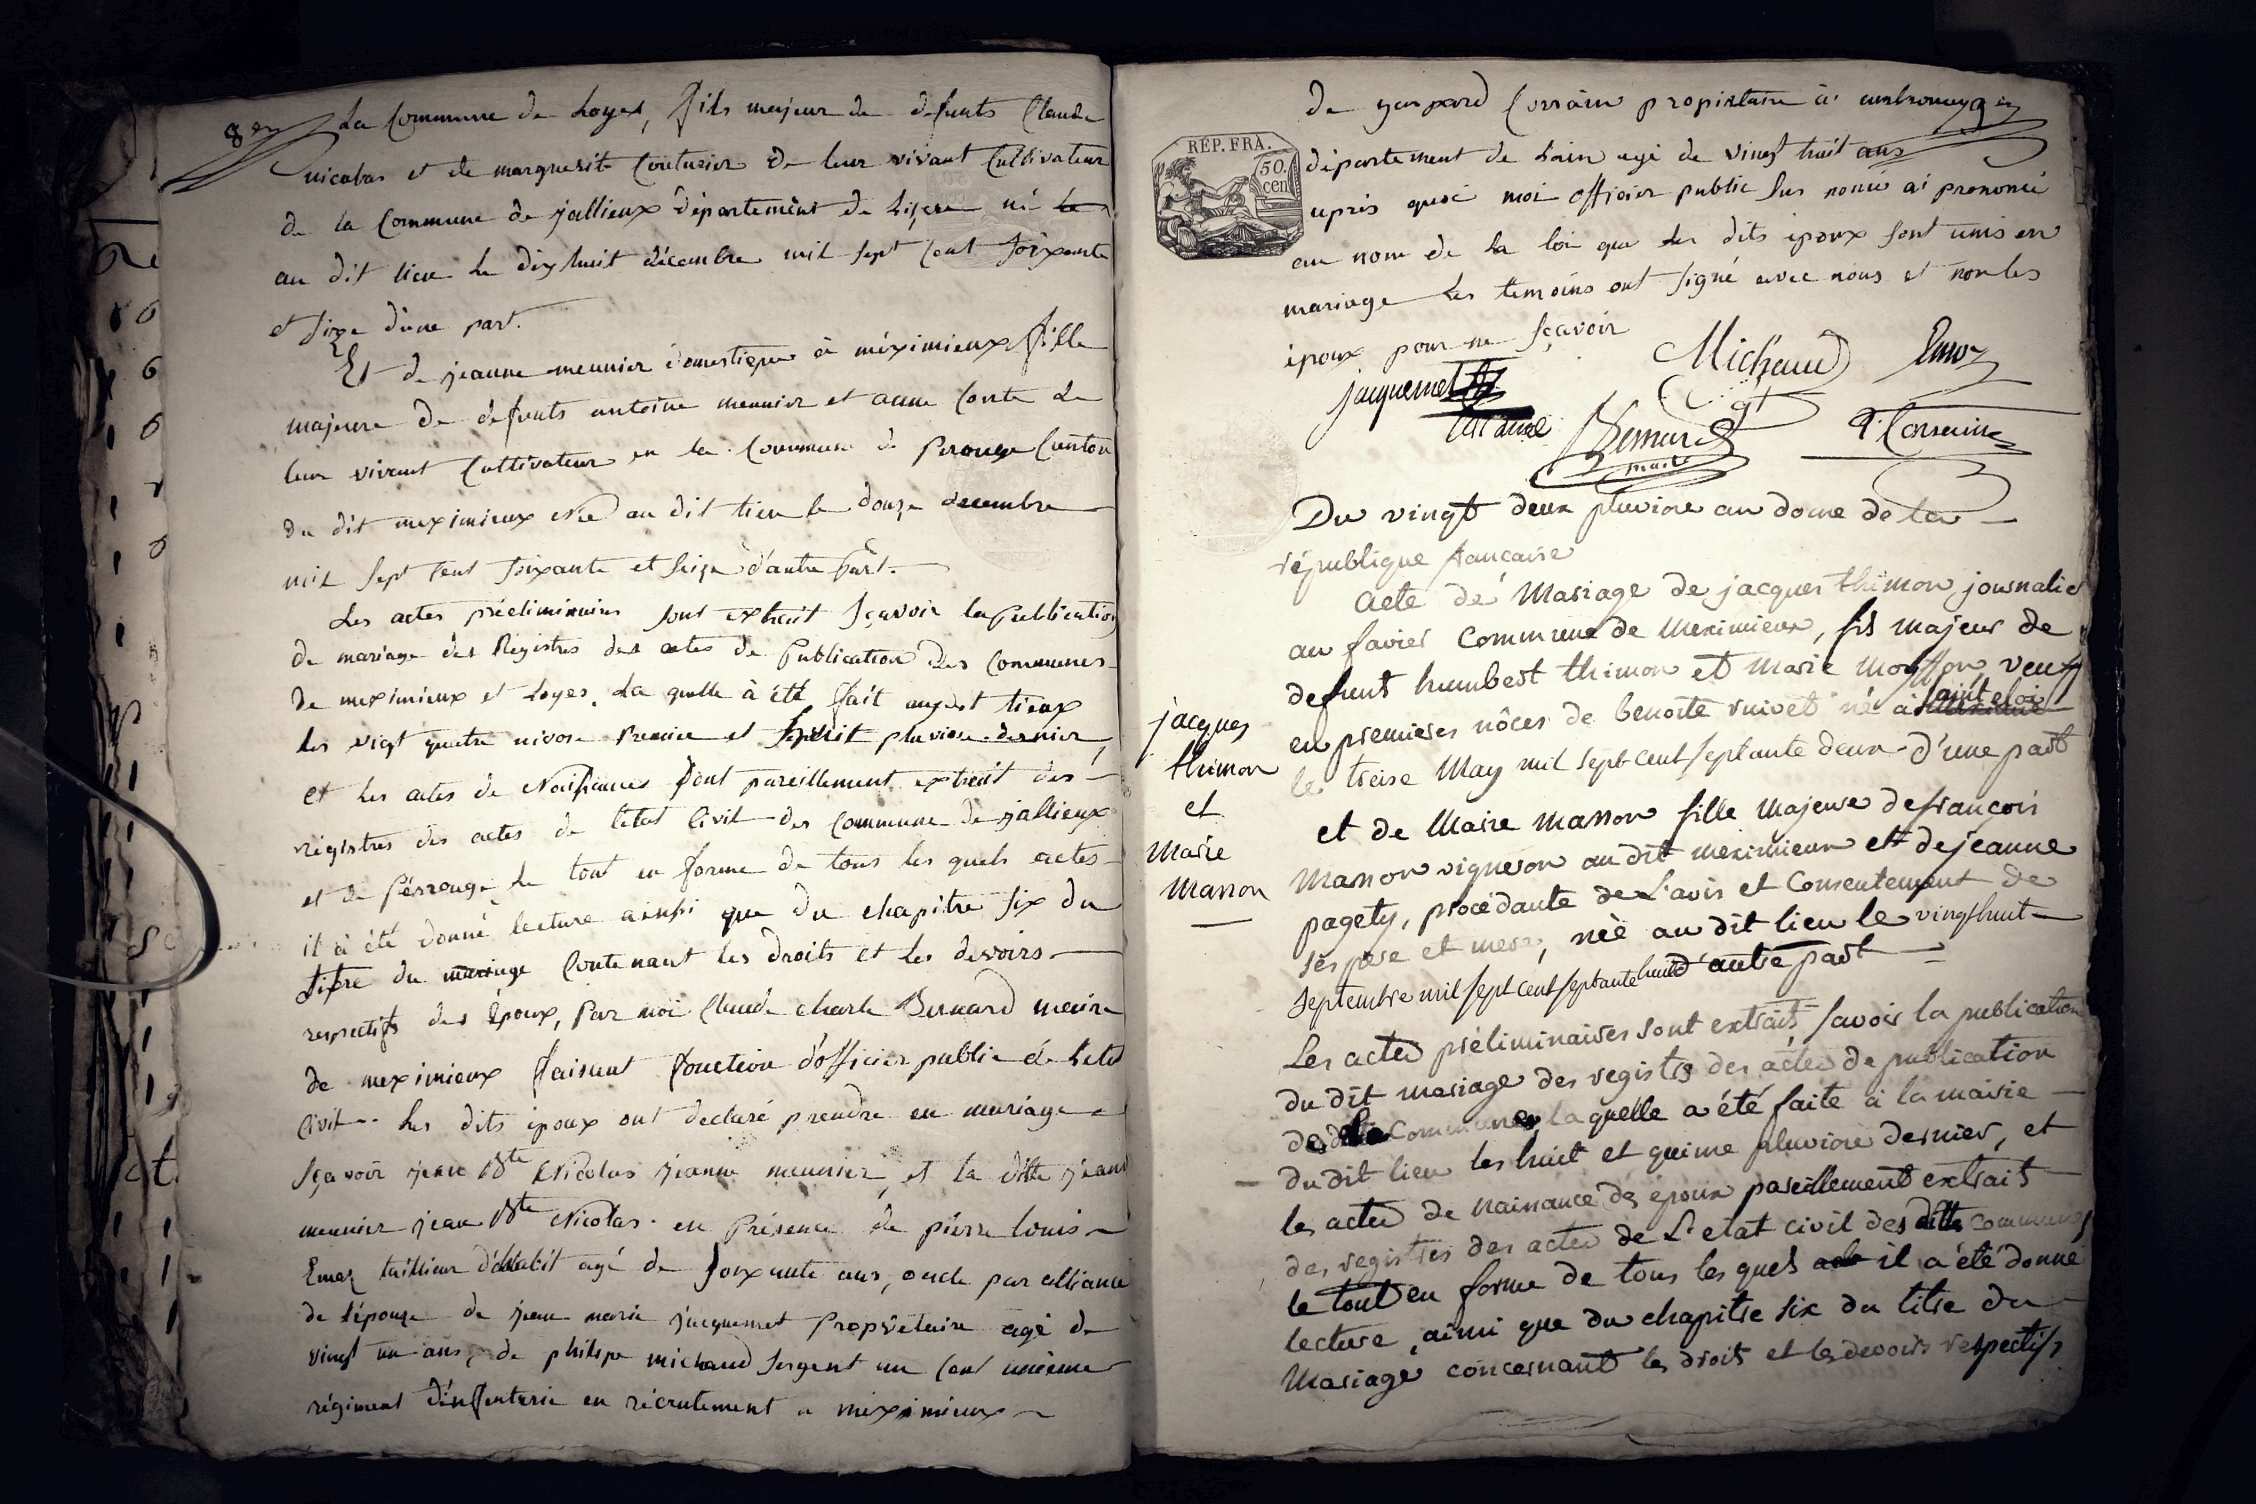 8 en
La Commune de Loyes, fils majeur de defunts Claude
nicolas et de marguerite Couturier de leur vivant Cultivateur
de la Commune de jallieux département de Lizere né le
au dit lieu le dixhuit décembre mil sept Cent soixante
et seize d'une part.
Et de jeanne meunier domestique a méximieux fille
majeure de défunts antoine meunier et anne Conte de
leur vivant Cultivateur en la Commune de Perouge Canton
du dit meximieux née au dit lieu le douze decembre
mil sept Cent soixante et seize d'autre Part.
Les actes préeliminaires sont extrait sçavoir la Publication
de mariage des Régistres des actes de Publication des Communes
de meximieux et Loyes. La quelle à été fait auxdit lieux
les vigt quatre nivose Premier et huit pluviose dernier,
et les actes de Naissances sont pareillement extrait des
régistres des actes de létat Civil des Commune de jallieux
et de Pérrouge le tout en forme de tous les quels actes
il à été donné lecture ainsi que du chapitre six du
titre du mariage Contenant les droits et les devoirs
respectifs des Epoux, Par moi Claude charle Bernard maire
de meximieux faisant fonction d'officier public de l'etat
Civil Les dits époux ont declaré prendre en mariage
Sçavoir jean Bte Nicolas jeanne meunier, et la ditte jeanne
meunier jean Bte Nicolas. en Présence de pierre louis
Emoz taillieur d'habit agé de soixante ans, oncle par alliance
de l'épouze de jean marie jacquemet Propriétaire agé de
vingt un ans, de philipe michaud sergent au Cent unième
régiment d'infanterie en récrutement a méximieux
de gaspard Corrain propriétaire à ambronay 9 en
RÉP. FRA.
50.
cen
département de Lain agé de vingt huit ans
après quoi moi officier public sus nomé ai prononcé
au nom de la loi que les dits époux sont unis en
mariage les temoins ont signé avec nous et non les
époux pour ne sçavoir
Michaud
Emoz
jacquemet
Sgt
Bernard
maire
Du vingt deux pluviose an douze de la
république francaise
Acte de Mariage de jacques thimon, journalier
au favier Commune de Meximieux, fils majeur de
defunt humbert thimon et Marie Monffon, veuf
en premieres nôces de benoite ruivet né à Saint eloi
le treise May mil sept cent septante deux d'une part
jacques
thimon
et
Marie
Masson
et de Marie Masson fille Majeure de francois
Masson vigneron au dit meximieux et de jeanne
pagety, procédante de L'avis et Consentement de
ses pere et mere, née au dit lieu le vingthuit
septembre mil sept cent septante huit d'autre part
Les actes préliminaires sont extrait savoir la publication
du dit mariage des registres des actes de publication
Communes, la quelle a été faite à la mairie
du dit lieu les huit et quinze pluviose dernier, et
les actes de naissance des époux pareillement extrait
des registres des actes de L'etat civil des dittes communes
le tout en forme de tous les quels il a été donné
lecture, ainsi que du chapitre six du titre du
Mariage concernant les droits et les devoirs respectifs